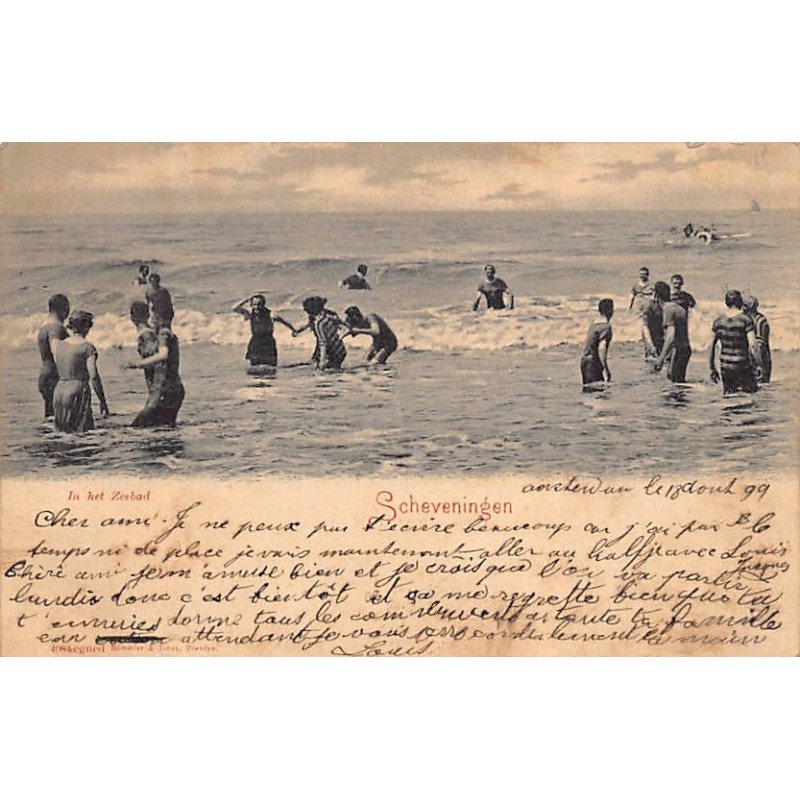 In het Zeebad
Scheveningen
le 18 aout 99
Cher ami. Je ne peux pas t'ecrire beaucoup car j'ai pas le
temps ni de place je vais maintenant aller au avec Louis
Chéri ami je m'amuse bien et je crois que l'on va partir Jacques
lundis donc c'est bientôt et ça me regrette bien que tu
t'ennuies dorme tous les a toute ta famille
en attendant je vous serre cordialement la main
Louis.
Römmler & Jonas, Dresden.